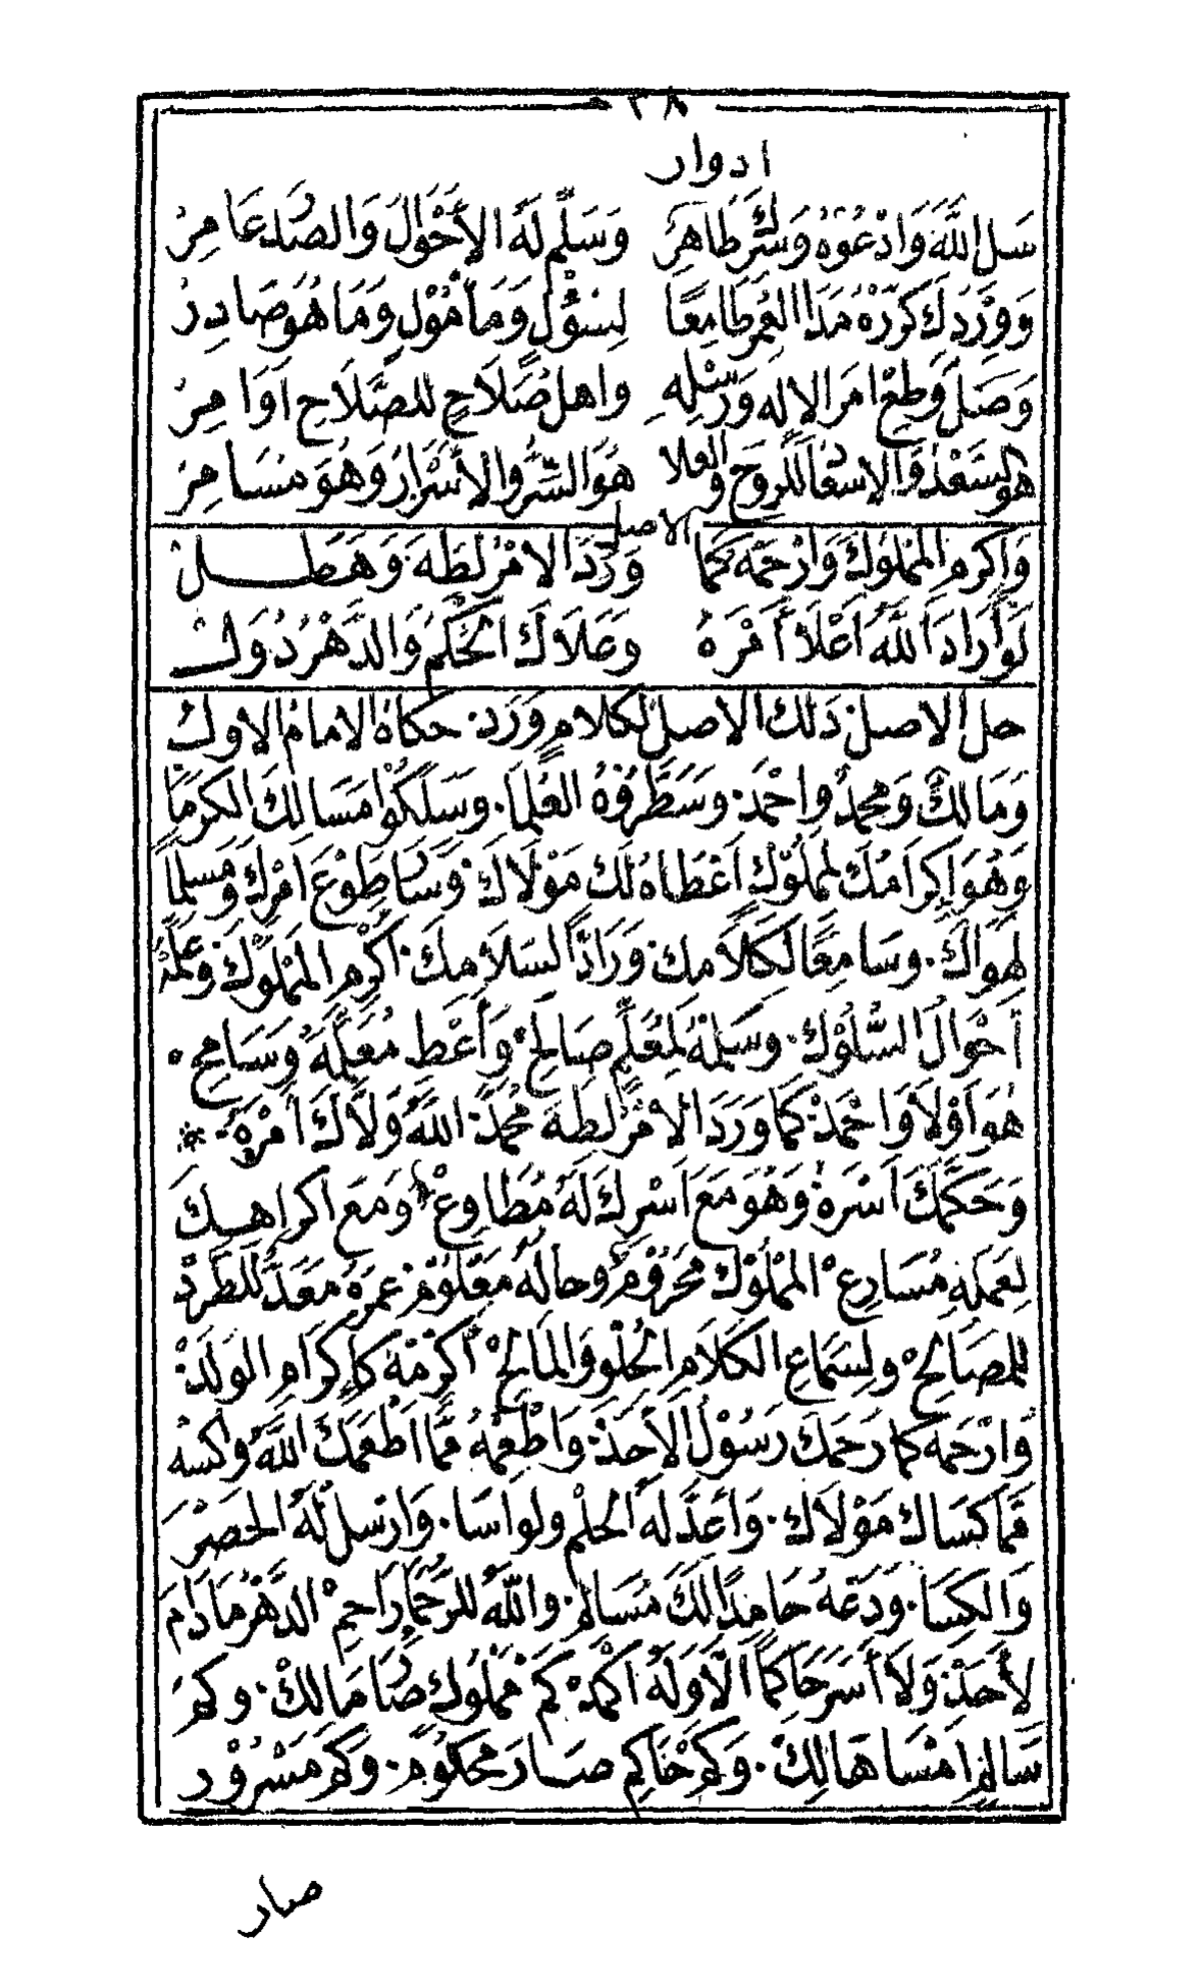 ٣٨
ادوار
سَلِ اللَّهَ وَادْعُوهُ وَسِرُّكَ طَاهِرُ وَسَلِّمْ لَهُ الأَحْوَالَ وَالصَّدْعَامِرُ
وَوِرْدَكَ كَرِّرْهُ مَدَا العُمْرِ طَامِعًا لِسُؤْلٍ وَمَأْمُوْلٍ وَمَا هُوَ صَادِرُ
وَصَلِّ وَطِعْ امرَ الإلهِ وَرُسْلِهِ واهل صَلَاحٍ للصَّلَاحِ اَوَامِرُ
هو السَّعْدُ وَالإسْعَا للرُّوحِ والعلا هُوَ السِّرُّ والأسْرَارُ وَهُوَ مُسَامِرُ
الاصل
وَاكرم المَمْلُوْكَ وَارْحَمْهُ كَمَا وَرَدَ الامْرُ لِطهَ وَهَطَلْ
لَوْ أَرَادَ اللَّهُ اَعْلَا أَمْرَهُ وَعَلَاكَ الحُكْمُ وَالدَّهْرُ دُوَلْ
حل الاصل ذلك الاصل لكلامٍ وَرَد حكاهُ الامامُ الاول
وَمَالِكٌ وَمحمدٌ واحْمَد وسَطَّرُوْهُ العُلَمَا وسَلَكُوْا مَسَالِكَ الكُرَمَا
وَهُوَ اِكرَامُكَ لِمَمْلُوْكٍ اَعْطَاهُ لَكَ مَوْلَاكَ وَسَارَ طِوْعَ امْرِكَ ومسلما
لهَوَاكَ وسَامِعًا لكَلَامِك وَرَادًّا لسَلَامِكَ اكْرِمِ المَمْلُوْكَ وعَلِّمْهُ
أَحْوَالَ السُّلُوْك وَسَلِّمْهُ لمُعَلِّمٍ صَالِحْ وَأَعْطِ مُعَلِّمَهُ وَسَامِحْ
هُوَ أَوَّلًا وَاحْمَدْ كَمَا وَرَدَ الامْرُ لِطهَ مُحمَّد اللَّهُ وَلَّاكَ أَمْرَهُ
وَحَكَّمَكَ اَسْرَهُ وَهُوَ مَعَ اَسْرِكَ لَهُ مُطَاوِعْ وَمَعَ اكرَاهِكَ
لِعَمَلِهِ مُسَارِعْ المَمْلُوْكُ مَحْرُوْمٌ وحَالُهُ مَعْلُوْم عمرَهُ مُعَدٌّ للطَّرْدِ
للمصَالِحْ ولسَمَاعِ الكَلَامِ الحُلْوِ وَالمَالِحْ اَكْرِمْهُ كَاِكرَامِ الولَدْ
وَارْحَمْهُ كما رَحِمَكَ رَسُوْلُ الأحَد وَاطْعِمْهُ مِمَّا اَطْعَمَكَ اللَّهُ وَاكْسُهُ
مِمَّا كسَاكَ مَوْلَاك وَاَعِدَّ لهُ الحِلْمَ ولو اَسَا وَارْسِلْ لَهُ الحصْرَ
وَالكِسَا وَدَعْهُ حَامِدًا لَكَ مُسَالِم واللَّهُ للرُّحَمَا رَاحِمْ الدَّهْرُ مَا دَامَ
لأَحَدْ وَلَا أَسَرَّ حَاكِمًا اِلَّا وَلَهُ اَكْمَد كَمْ مَمْلُوكٍ صَارَ مَالِكْ وَكَمْ
سَالِمٍ امْسَا هَالِكْ وَكَمْ حَاكِمٍ صَارَ مَحْكُوْم وَكَمْ مَسْرُوْرٍ
صار